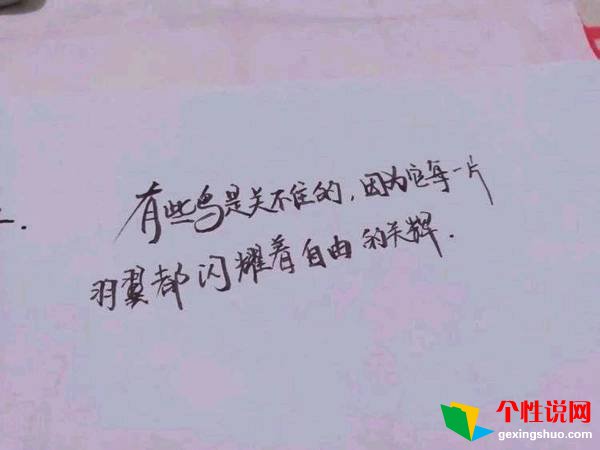 有些鸟是关不住的,因为它每一片
羽翼都闪耀着自由的光辉.
个性说网
gexingshuo.com